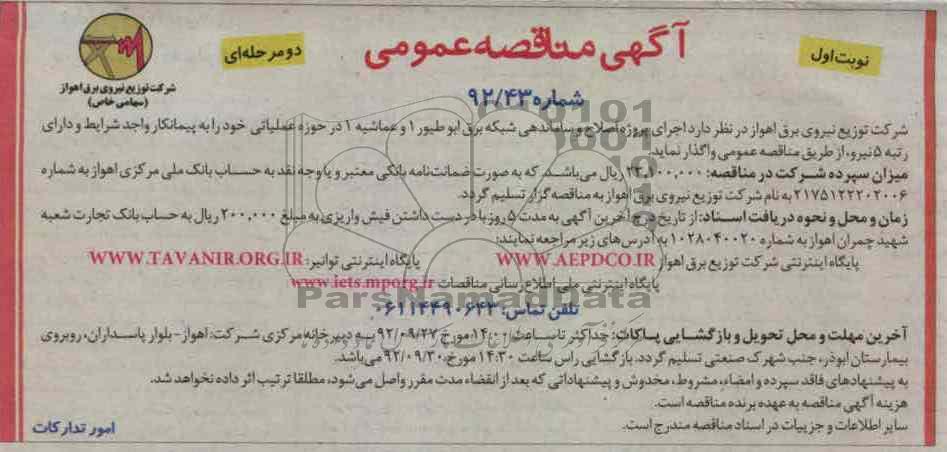 آگهی مناقصه عمومی
نوبت اول
دو مرحله‌ای
شرکت توزیع نیروی برق اهواز
(سهامی خاص)
شماره ۹۲/۴۳
شرکت توزیع نیروی برق اهواز در نظر دارد اجرای پروژه اصلاح و ساماندهی شبکه برق ابوطیور ۱ و عماشیه ۱ در حوزه عملیاتی خود را به پیمانکار واجد شرایط و دارای
رتبه ۵ نیرو، از طریق مناقصه عمومی واگذار نماید.
میزان سپرده شرکت در مناقصه: ۲۳,۱۰۰,۰۰۰ ریال می‌باشد که به صورت ضمانت‌نامه بانکی معتبر و یا وجه نقد به حساب بانک ملی مرکزی اهواز به شماره
۲۱۷۵۱۲۲۲۰۲۰۰۶ به نام شرکت توزیع نیروی برق اهواز به مناقصه گزار تسلیم گردد.
زمان و محل و نحوه دریافت اسناد: از تاریخ درج آخرین آگهی به مدت ۵ روز با در دست داشتن فیش واریزی به مبلغ ۲۰۰,۰۰۰ ریال به حساب بانک تجارت شعبه
شهید چمران اهواز به شماره ۱۰۲۸۰۴۰۰۲۰ به آدرس های زیر مراجعه نمایند:
پایگاه اینترنتی شرکت توزیع برق اهواز WWW.AEPDCO.IR پایگاه اینترنتی توانیر: WWW.TAVANIR.ORG.IR
پایگاه اینترنتی ملی اطلاع رسانی مناقصات www.iets.mporg.ir
ParsNamadData
تلفن تماس: ۰۶۱۱۴۴۹۰۶۴۳
آخرین مهلت و محل تحویل و بازگشایی پاکات: حداکثر تا ساعت ۱۴:۰۰ مورخ ۹۲/۰۹/۲۷ به دبیرخانه مرکزی شرکت: اهواز - بلوار پاسداران، روبروی
بیمارستان ابوذر، جنب شهرک صنعتی تسلیم گردد. بازگشایی راس ساعت ۱۴:۳۰ مورخ ۹۲/۰۹/۳۰ می‌باشد.
به پیشنهادهای فاقد سپرده و امضاء، مشروط، مخدوش و پیشنهاداتی که بعد از انقضاء مدت مقرر واصل می‌شود، مطلقا ترتیب اثر داده نخواهد شد.
هزینه آگهی مناقصه به عهده برنده مناقصه است.
سایر اطلاعات و جزییات در اسناد مناقصه مندرج است.
امور تدارکات